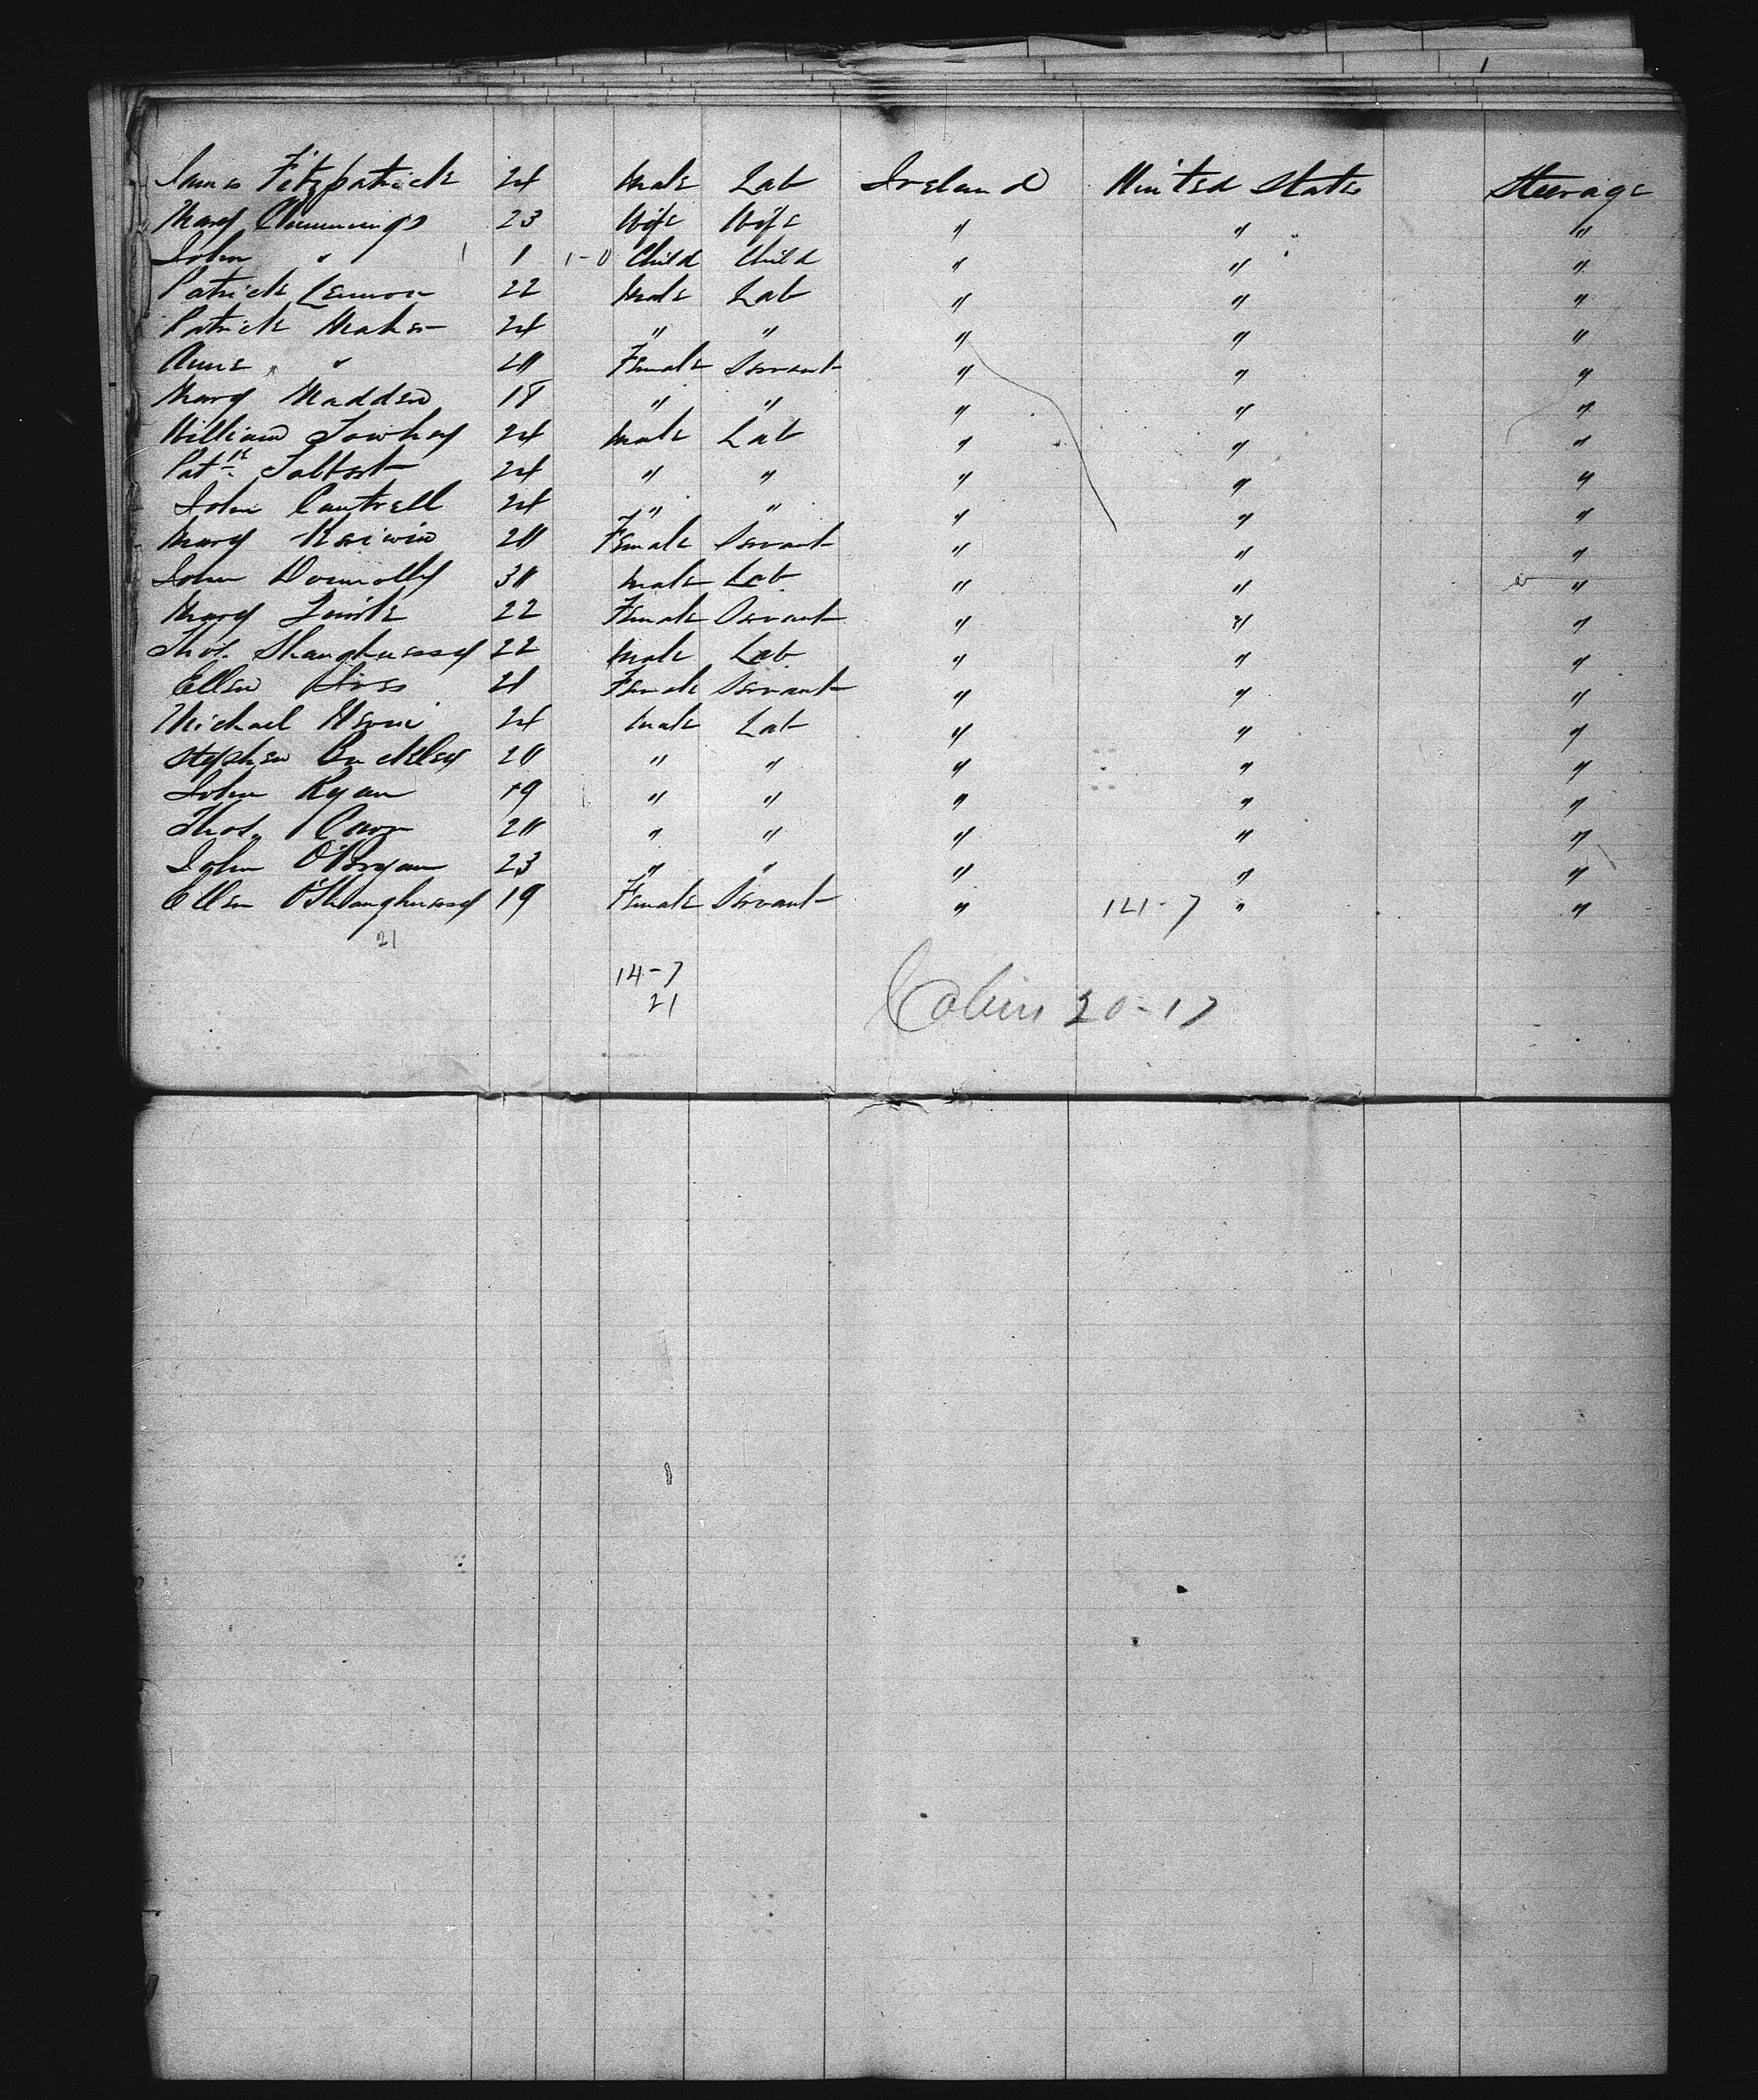 James Fitzpatrick 24 Male Lab Ireland United States Steerage
Mary Cummings 23 Wife Wife " " "
John " 1 1 1-0 Child Child " " "
Patrick Lennon 22 Male Lab " " "
Patrick Maher 24 " " " " "
Anne " 20 Female Servant " " "
Mary Madden 18 " " " " "
William Towhey 24 Male Lab " " "
Patk Talbot 24 " " " " "
John Cantrell 24 " " " " "
Mary Kerwin 20 Female Servant " " "
John Donnolly 30 Male Lab " " "
Mary 22 Female Servant " " "
Thos. Shaughnessy 22 Male Lab " " "
Ellen 21 Female Servant " " "
Michael 24 Male Lab " " "
Stephen Buckley 20 " " " " "
John Ryan 19 " " " " "
Thos. 20 " " " " "
John O'Bryan 23 " " " " "
Ellen O'Shaughnessy 19 Female Servant " 14-7 " "
21
14-7
21
Cabin 20-17